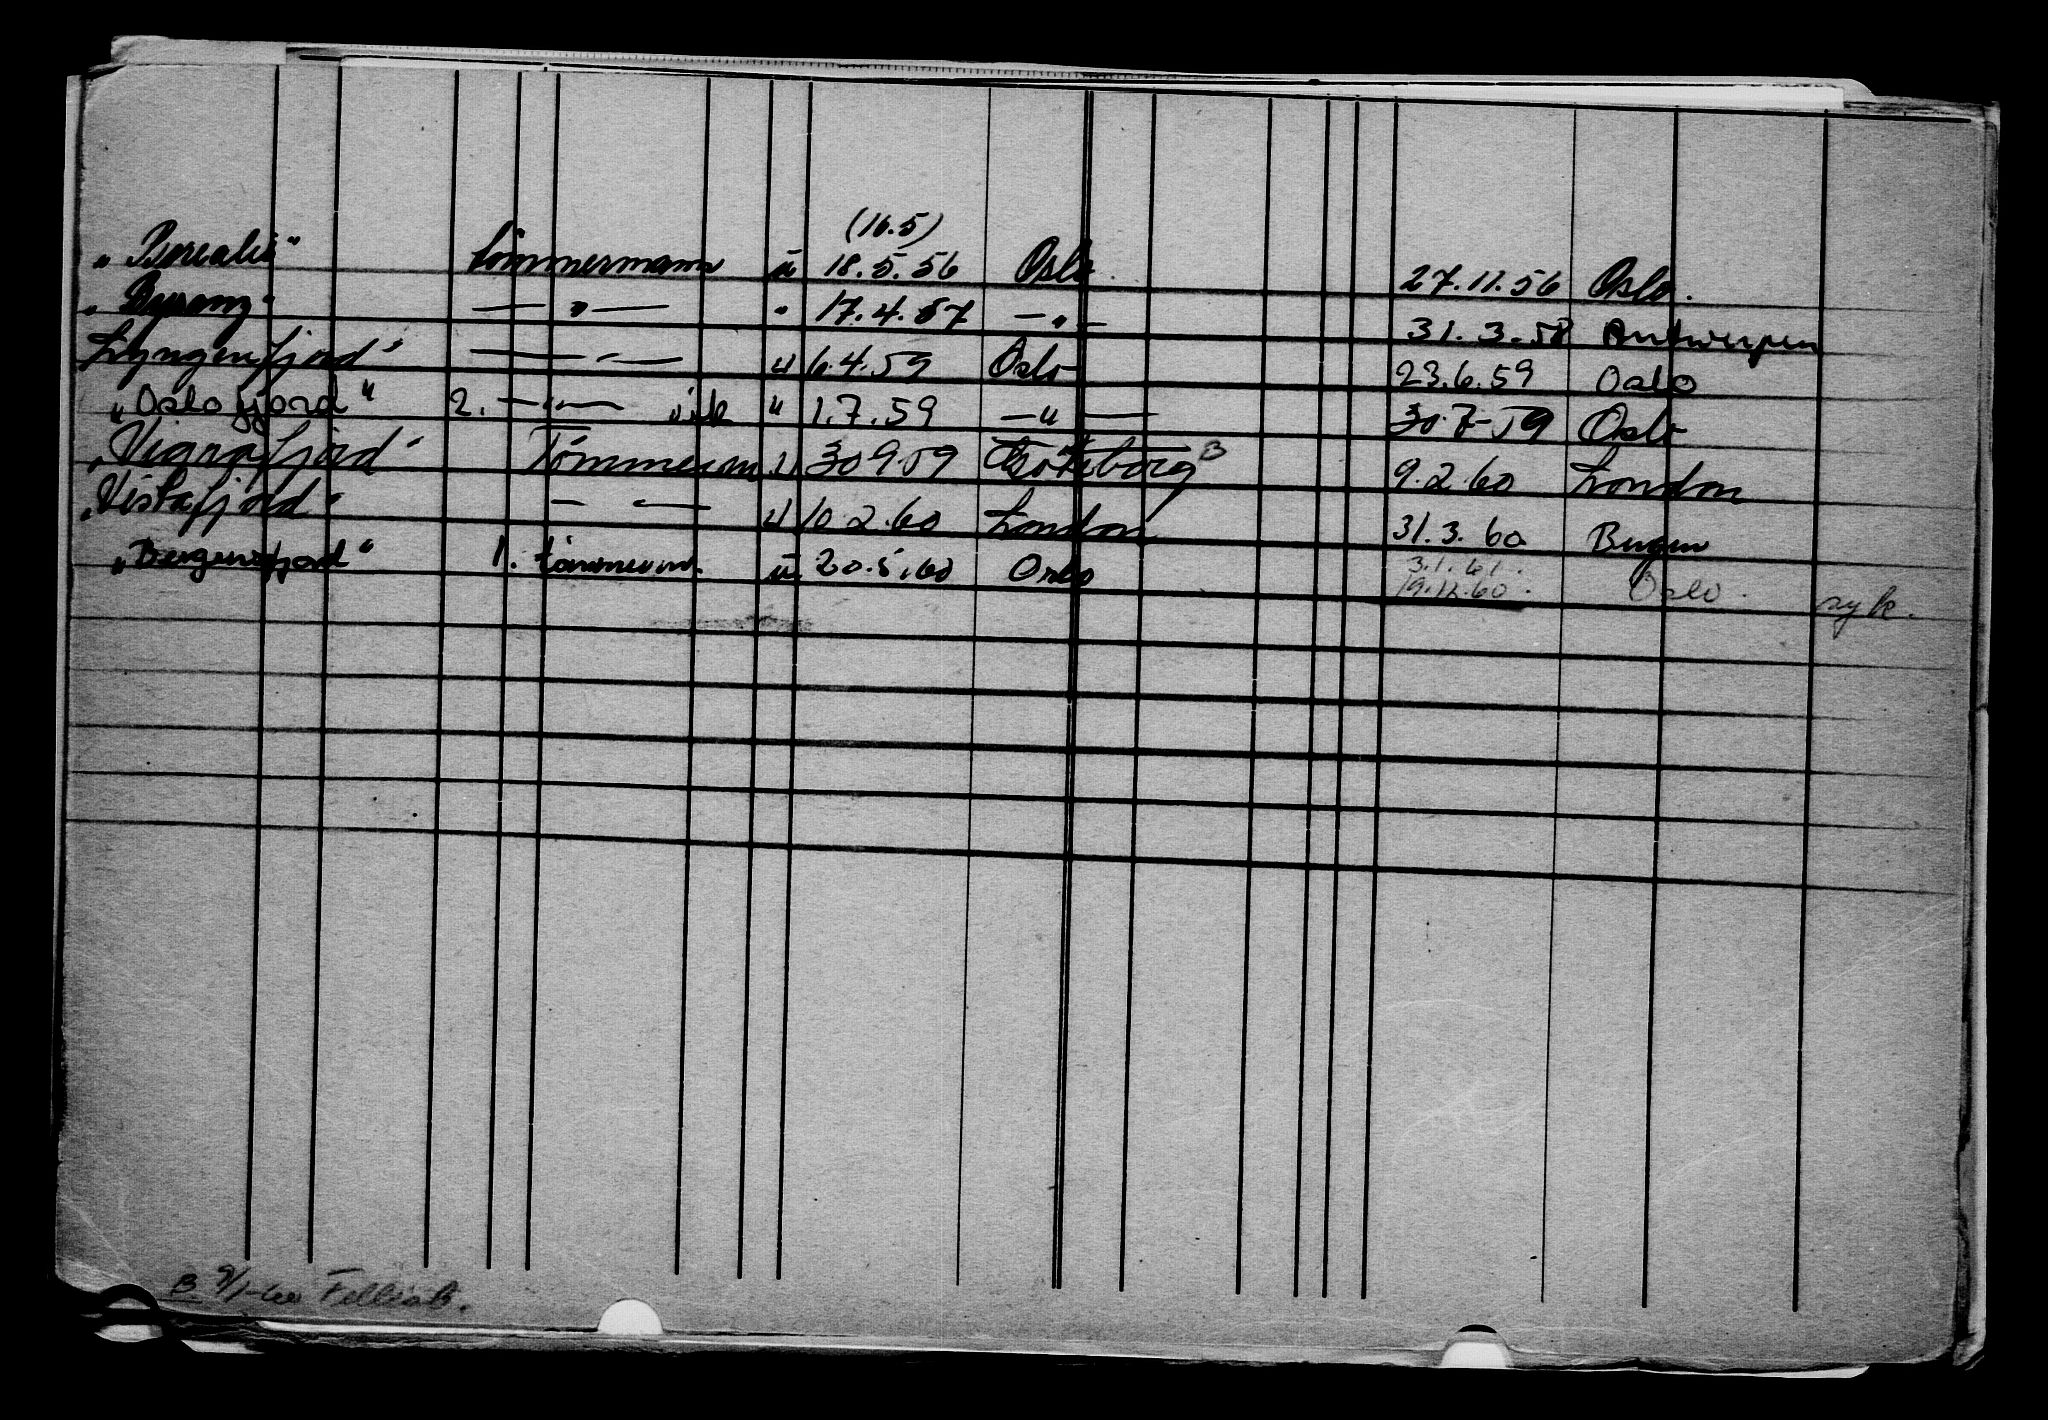 (16.5)
„Borealis" tömmermann u 18.5.56 Oslo. 27.11.56 Oslo.
„Byrong" — " — " 17.4.57 — " — 31.3.58 Antwerpen
Lyngenfjord" — " — u 6.4.59 Oslo 23.6.59 Oslo
„Oslofjord" 2. — " — " 1.7.59 — " — 30.7-59 Oslo
„Vigrafjord" Tömmerm u 30 9.59 Gøteborg B 9.2.60 London
„Vistafjord" — " — u 10.2.60 London 31.3.60 Bergen
„Bergensfjord" 1. tømmerm. u 20.5.60 Oslo 3.1.61.
19.12.60. Oslo. syk.
B 9/1-60 Fellesb.